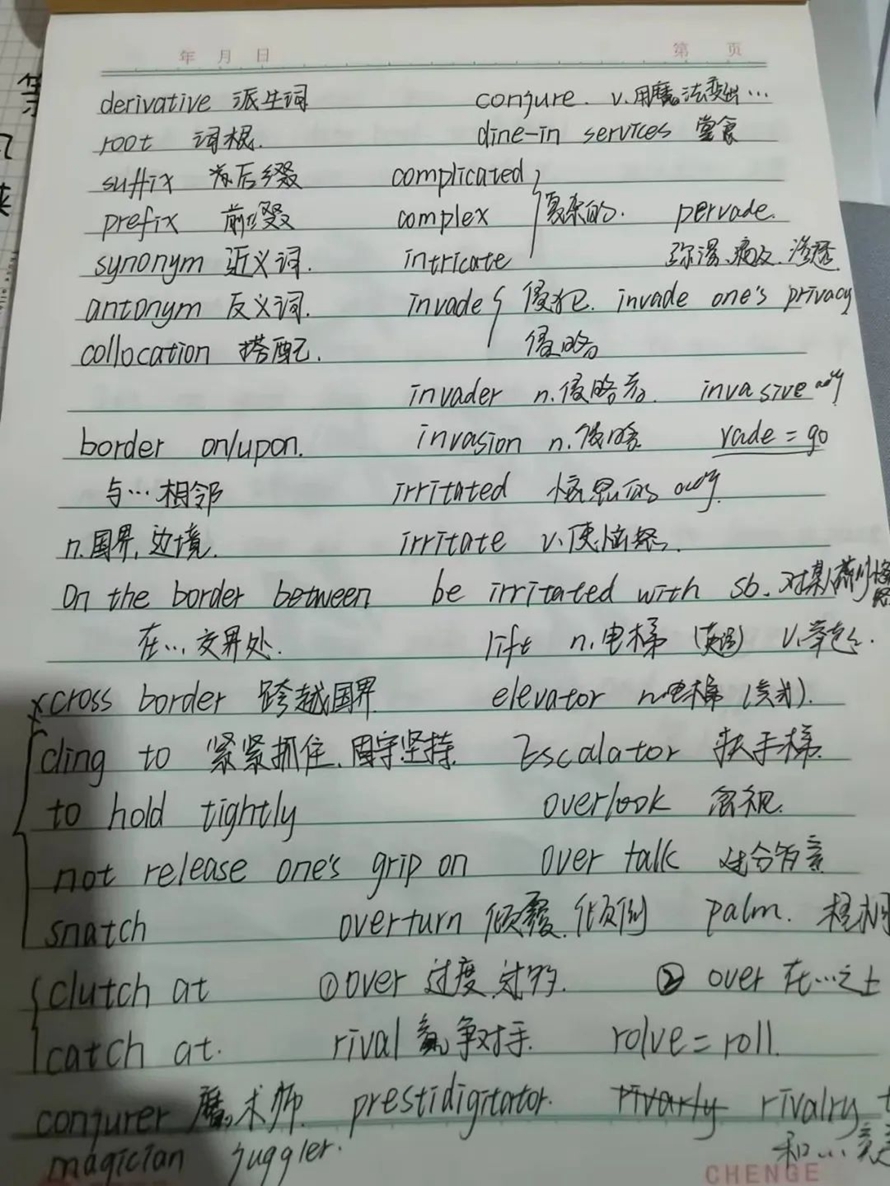 年 月 日 第 页
derivative 派生词 conjure. v.用魔法变出…
root 词根. dine-in services 堂食
suffix 后缀 complicated
prefix 前缀 complex 复杂的. pervade.
synonym 近义词. intricate 弥漫、遍及、渗透
antonym 反义词. invade 侵犯. invade one's privacy
collocation 搭配. 侵略
invader n.侵略者. invasive adj
border on/upon. invasion n.侵略 vade = go
与…相邻 irritated 恼怒的 adj.
n.国界,边境. irritate v.使恼怒.
On the border between be irritated with sb. 对某人
在…交界处. lift n.电梯 (英式) v.举起.
cross border 跨越国界 elevator n.电梯 (美式).
cling to 紧紧抓住.固守坚持. Escalator 扶手梯.
to hold tightly overlook 忽视.
not release one's grip on over talk
snatch overturn 倾覆.倾倒 palm.
clutch at ①over 过度.过多. ② over 在…之上
catch at. rival 竞争对手. rolve = roll.
conjurer 魔术师. prestidigitator. rivarly rivalry
magician juggler. 和…竞
CHENGE